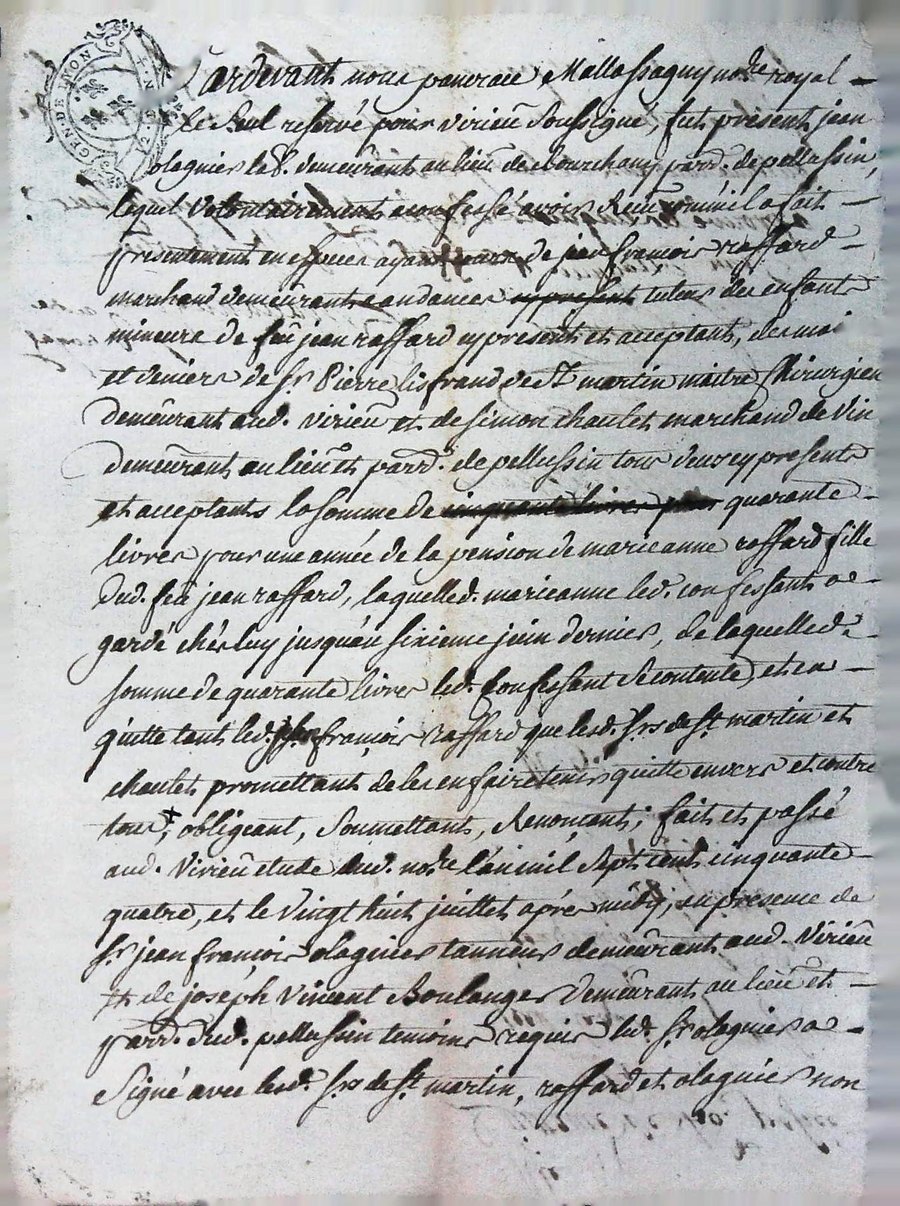 GEN. DE LYON
Pardevant nous pancrace Mallassagny no.re royal
le Seul reservé pour virieu Soussigné, fut present jean
olagnier le 8. demeurant au lieu de Bourchany parr.e de pellussin,
lequel Volontairement a confessé avoir Receu comme il a fait
presentement en especes ayant cours de jean françois raffard
marchand demeurant a andance tuteur des enfants
mineurs de feu jean raffard cy present et acceptant, des mai
et deniers de Sr. Pierre lisfrand de St. martin maitre Chirurgien
demeurant aud. virieu et de simon chaulet marchand de Vin
demeurant au lieu et parr.e de pellussin tous deux cy presents
et acceptants la somme de cinquante livres pour quarante
livres pour une année de la pension de marieanne raffard fille
dud. feu jean raffard, laquelle d. marieanne led. confessant a
gardé chés luy jusqu'au sixieme juin dernier, de laquelle d.e
somme de quarante livres led. Confessant Se contente, et en
quitte tant led. françois raffard que lesd. srs de St. martin et
chaulet promettant de les en faire tenir quitte envers et contre
tous +, obligeant, Soumettant, Renonçant; fait et passé
aud. Virieu etude dud. no.re l'an mil Sept cent cinquante
quatre, et le Vingt huit juillet aprés midy, en presence de
Sr. jean françois olagnier tanneur demeurant aud. Virieu
et de joseph Vincent Boulanger demeurant au lieu et
parr.e dud. pellussin temoins requis led. Sr olagnier a
Signé avec lesd. srs de St. martin, raffard et olagnier non